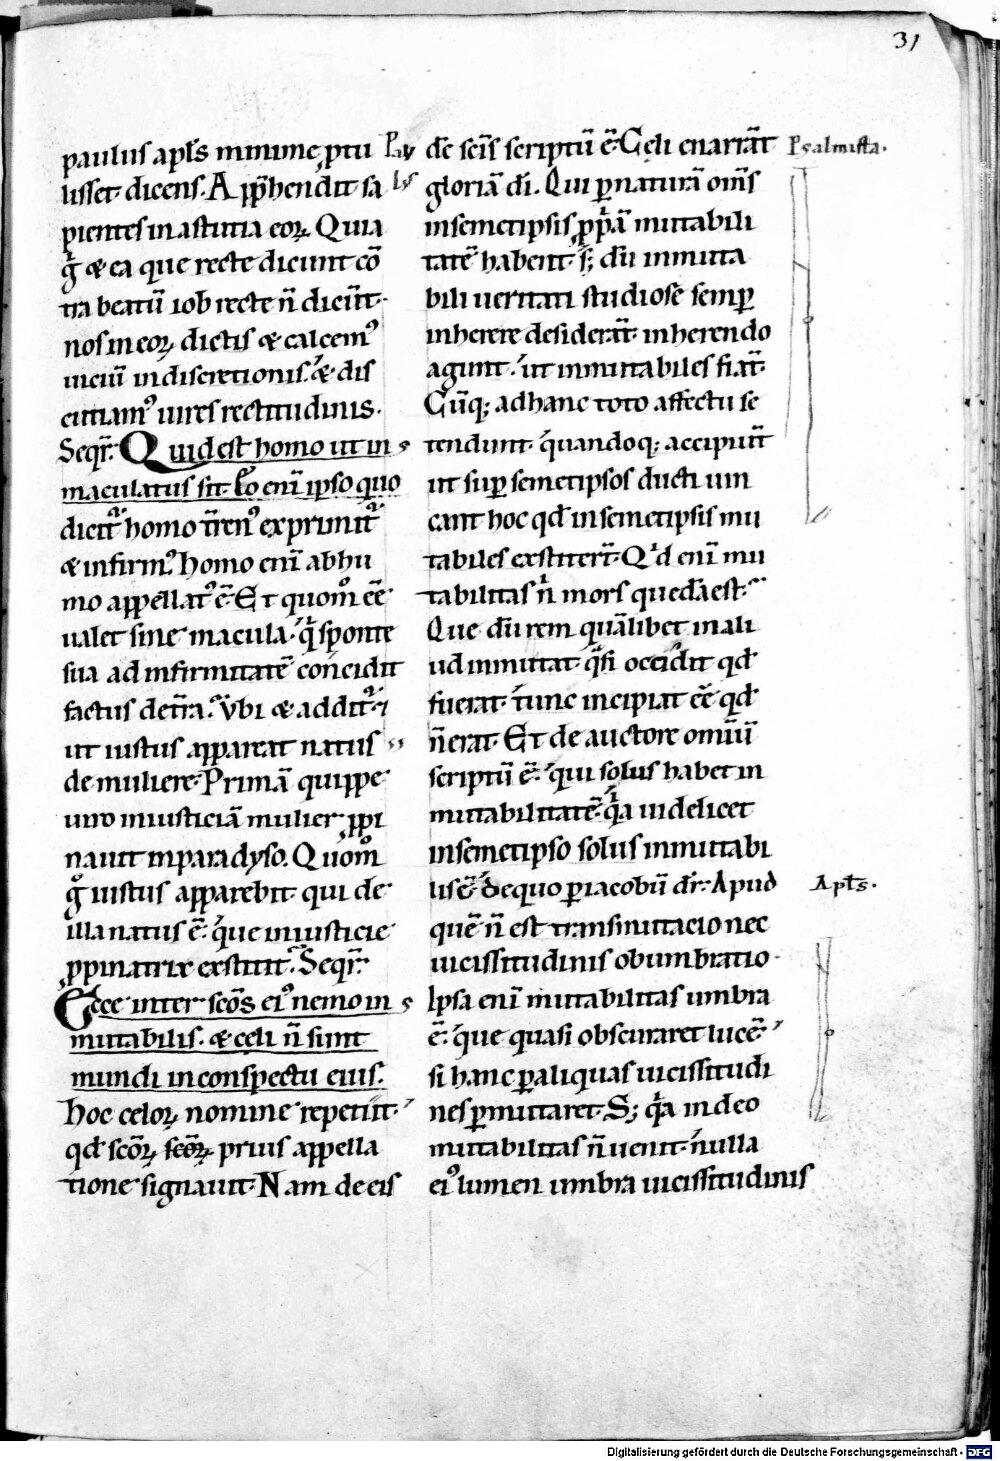 31
paulus apl̄s minime ꝓtu
lisset dicens. Apꝑhendit sa
pientes in astutia eoꝝ. Quia
gͥ & ea que recte dicunt cō
tra beatū iob recte n̄ dicūt.
nos in eoꝝ dictis & calcemꝰ
uiciū indiscretionis. & dis
cutiamꝰ uires rectitudinis.
Seqr̄. Quid est homo ut in
maculatus sit. Eo enī ipso quo
dicit᷑ homo t̄renꝰ exprimit᷑
& infirmꝰ. Homo enī ab hu
mo appellatꝰ ē. Et quom̊ ēē
ualet sine macula. qͥ sponte
sua ad infirmitatē concidit
factus de t̄ra. Vbi & addit᷑
ut iustus appareat natus
de muliere. Primā quippe
uiro iniusticiā mulier ꝓpi
nauit in paradyso. Quom̊
g̊ iustus apparebit. qui de
illa natus ē. que iniusticie
ꝓpinatrix exstitit. Seqr̄.
Ecce inter scōs eiꝰ nemo in
mutabilis. & celi n̄ sunt
mundi in conspectu eius.
Hoc celoꝝ nomine repetiit.
qd̄ scōꝝ scōꝝ prius appella
tione signauit. Nam de eis
Pau
lꝰ
de seīs scriptū ē. Celi enarrāt
gloriā dī. Qui ꝑ naturā om̄s
in semetipsis ꝓpͥā mutabili
tatē habent. s; dū inmuta
bili ueritati studiose semꝑ
inherere desiderāt. inherendo
agunt. ut inmutabiles fiāt.
Cūq; ad hanc toto affectu se
tendunt. qͣandoq; accipiūt
ut suꝑ semetipsos ducti uin
cant hoc qd̄ in semetipsis mu
tabiles exstitert̄. Qͥd enī mu
tabilitas nͥ mors quedā est.
Que dū rem quālibet in ali
ud inmutat. qͣsi occidit qd̄
fuerat. tunc incipiat ēē qd̄
n̄ erat. Et de auctore omīū
scriptū ē. qui solus habet in
mutabilitatē. qͥa uidelicet
in semetipso solus inmutabi
lis ē. De quo ꝑ iacobū dr̄. Apud
quē n̄ est transmutacio nec
uicissitudinis obumbratio.
Ipsa enī mutabilitas umbra
ē. que quasi obscuraret lucē.
si hanc ꝑ aliquas uicissitudi
nes ꝑmutaret. S; qͥa in deo
mutabilitas n̄ uenit. nulla
eiꝰ lumen umbra uicissitudinis
Psalmista.
Apl̄s.
Digitalisierung gefördert durch die Deutsche Forschungsgemeinschaft - DFG